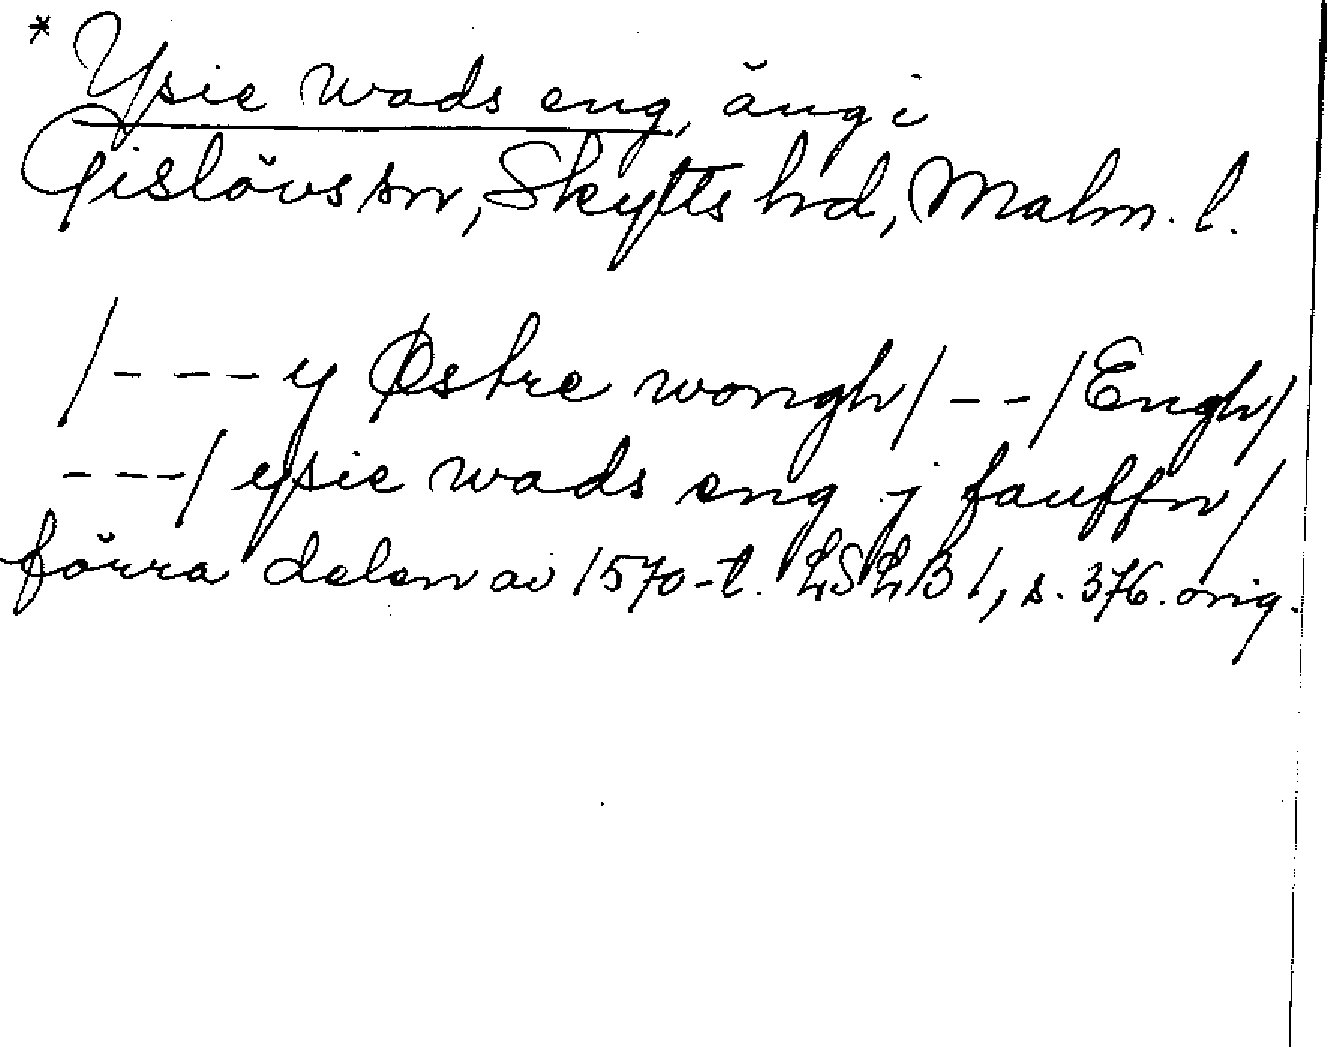 * Ysie wads eng, äng i
Gislövs sn, Skytts hd, Malm. l.
/---y Østre wongh/--/Engh/
---/ ysie wads eng j fauffn/
förra delen av 1570-t. LSLB 1, s. 376. orig.